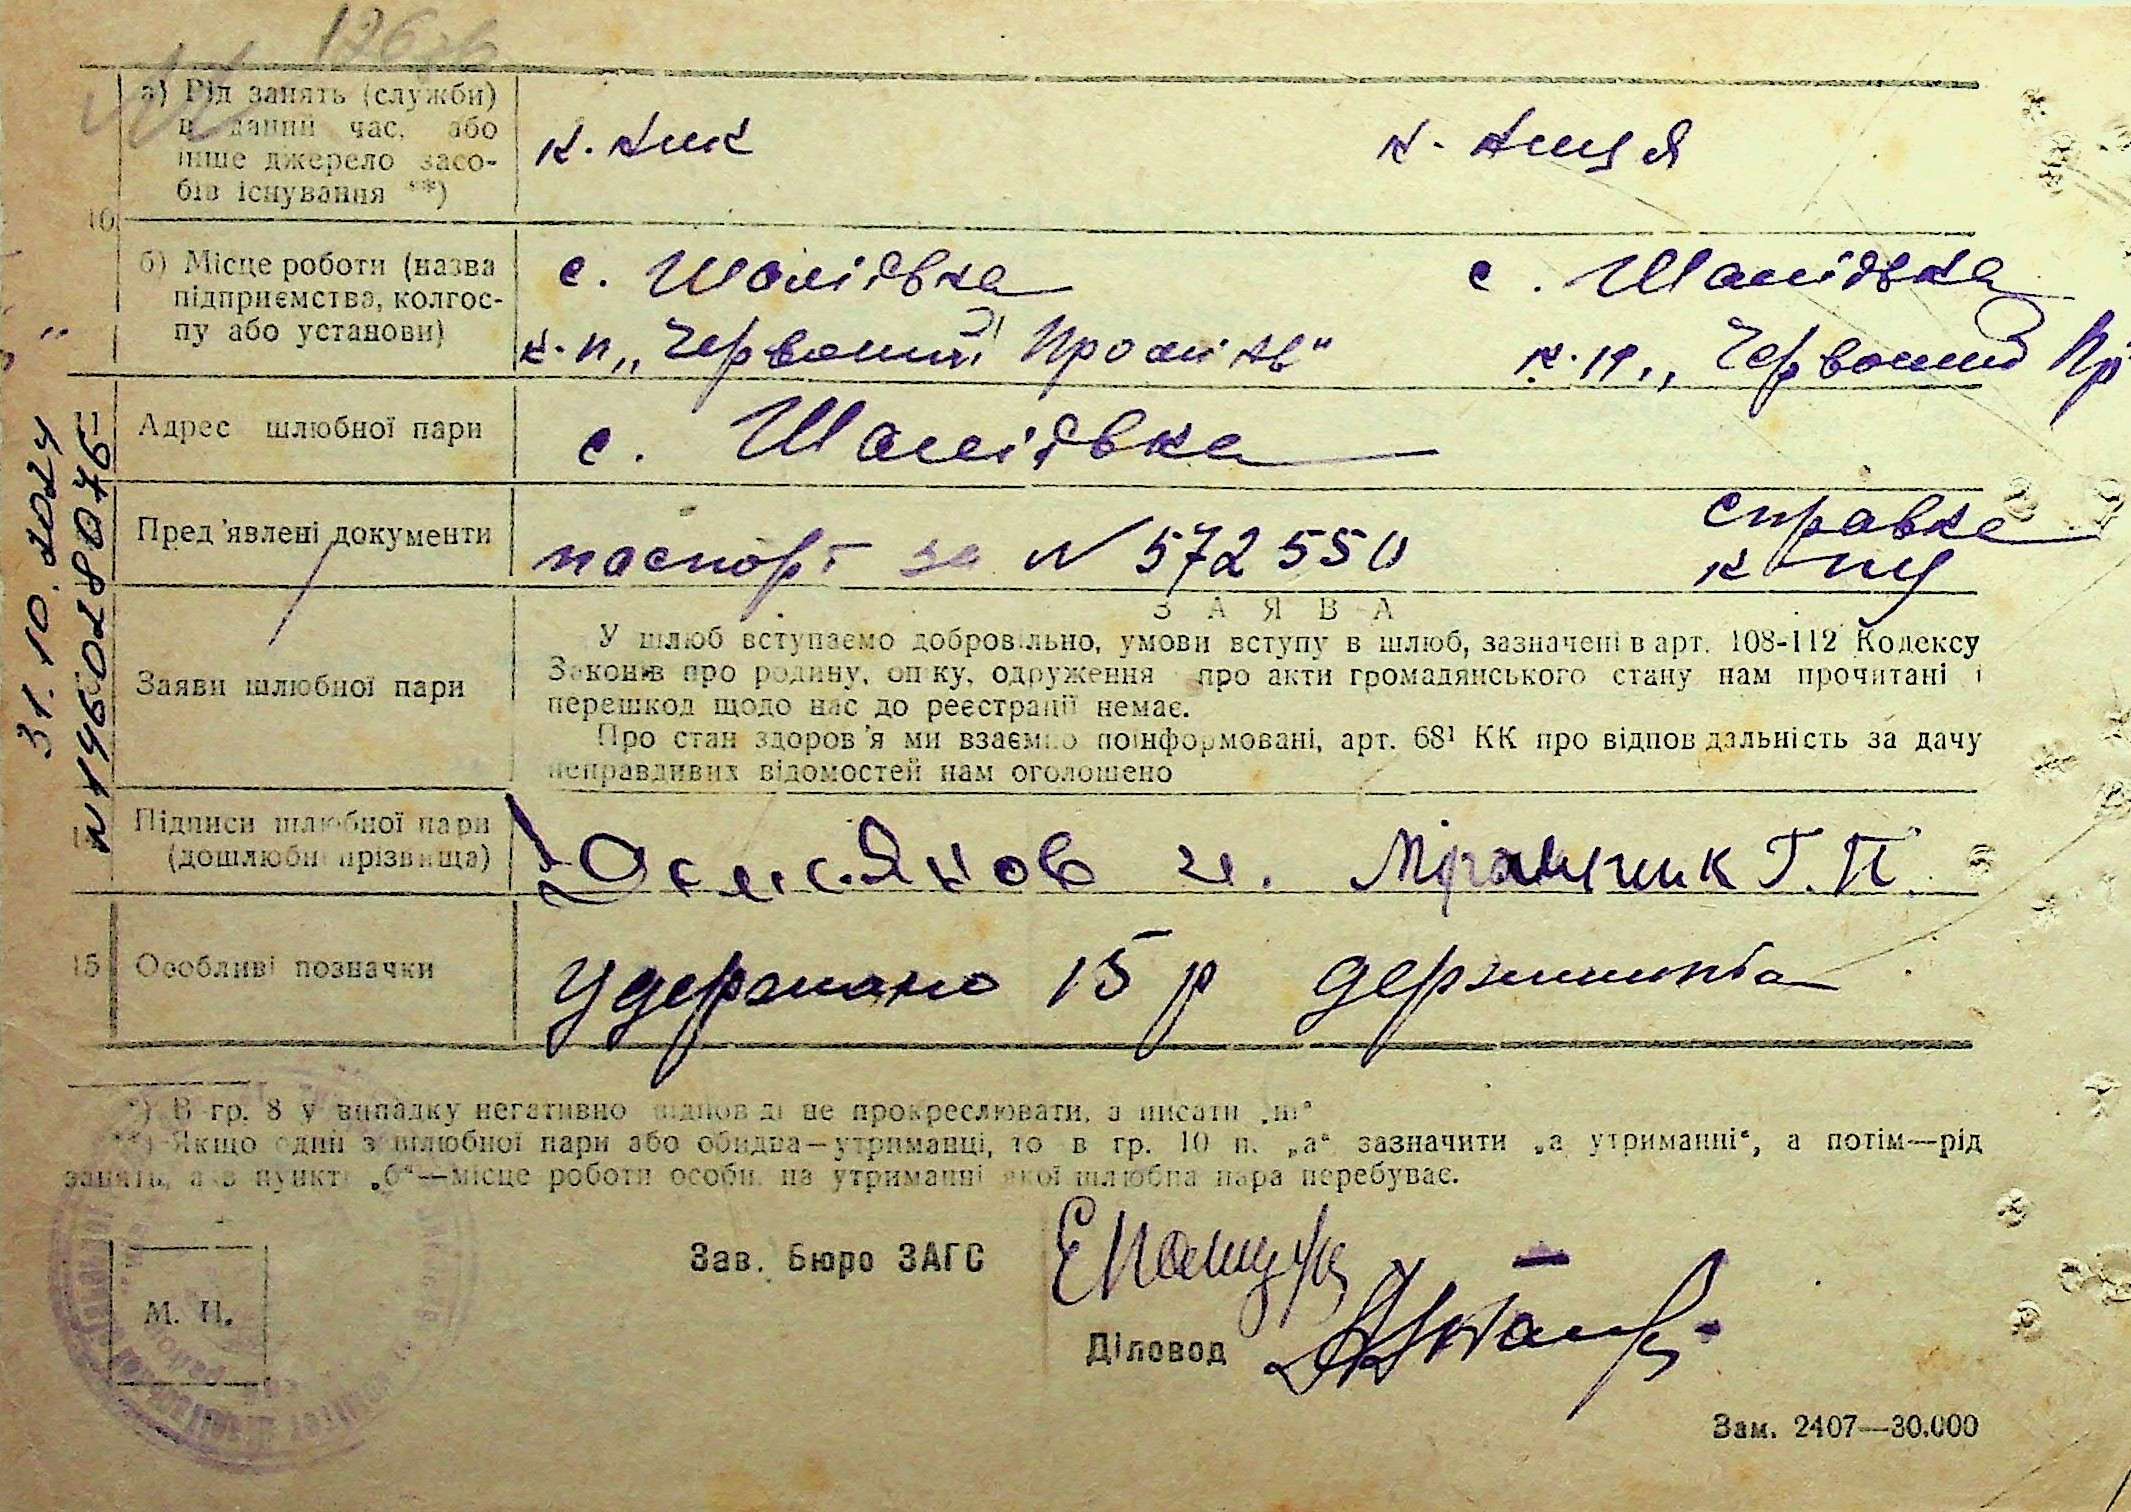 126
а) Рід занять (служби)
в даний час, або
інше джерело засо-
бів існування **)
к. ник
к. ниця
10
б) Місце роботи (назва
підприємства, колгос-
пу або установи)
с. Шаліївка
с. Шаліївка
к-п „Червоний Промінь"
к-п „Червоний Пр
11
Адрес шлюбної пари
с. Шаліївка
Пред'явлені документи
паспорт за N 572550
справка
к-пу
31.10.2024
N 19650288076
Заяви шлюбної пари
ЗАЯВА
У шлюб вступаємо добровільно, умови вступу в шлюб, зазначені в арт. 108-112 Кодексу
Законів про родину, опіку, одруження про акти громадянського стану нам прочитані і
перешкод щодо нас до реєстрації немає.
Про стан здоров'я ми взаємно поінформовані, арт. 68¹ КК про відповідальність за дачу
неправдивих відомостей нам оголошено
Підписи шлюбної пари
(дошлюбні прізвища)
Г. П.
15
Особливі позначки
Удержано 15 р держмита
*) В гр. 8 у випадку негативно відповіді не прокреслювати, а писати „ні"
**) Якщо один з шлюбної пари або обидва—утриманці, то в гр. 10 п. „а" зазначити „а утриманні", а потім—рід
занять, а в пункті „б"—місце роботи особи на утриманні якої шлюбна пара перебуває.
М. П.
Зав. Бюро ЗАГС
Діловод
Зам. 2407—30.000